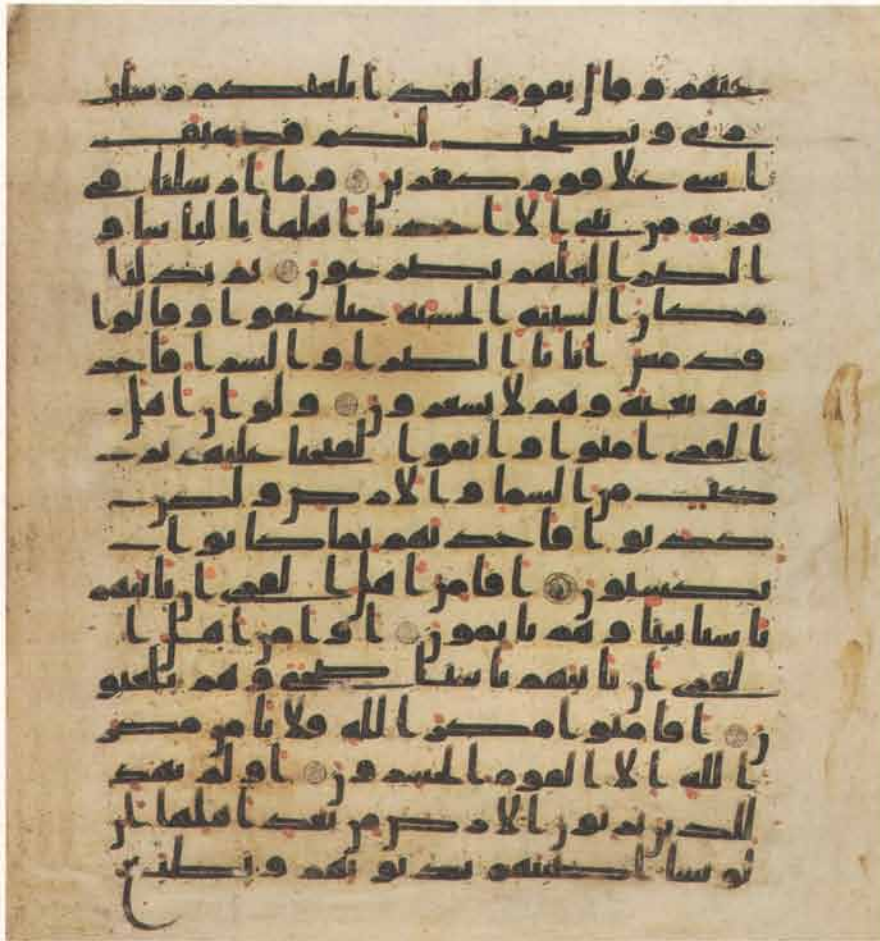 عنهم وقال يقوم لقد ابلغتكم رسلت
ربي ونصحت لكم فكيف
اسى علا قوم كفرين وما ارسلنا في
قرية من نبي الا اخذنا اهلها بالباسا و
الضرا لعلهم يضرعون ثم بدلنا
مكان السيئة الحسنة حتا عفوا وقالوا
قد مس ابانا الضرا والسرا فاخذ
نهم بغتة وهم لا يشعرون ولو ان اهل
القرى امنوا واتقوا لفتحنا عليهم بر
كت من السما والارض ولكن
كذبوا فاخذنهم بما كانوا
يكسبون افامن اهل القرى ان ياتيهم
باسنا بيتا وهم نايمون او امن اهل ا
لقرى ان ياتيهم باسنا ضحى وهم يلعبو
ن افامنوا مكر الله فلا يامن مكر
الله الا القوم الخسرون اولم يهد
للذين يرثون الارض من بعد اهلها ان
لو نشا اصبنهم بذنوبهم ونطبع